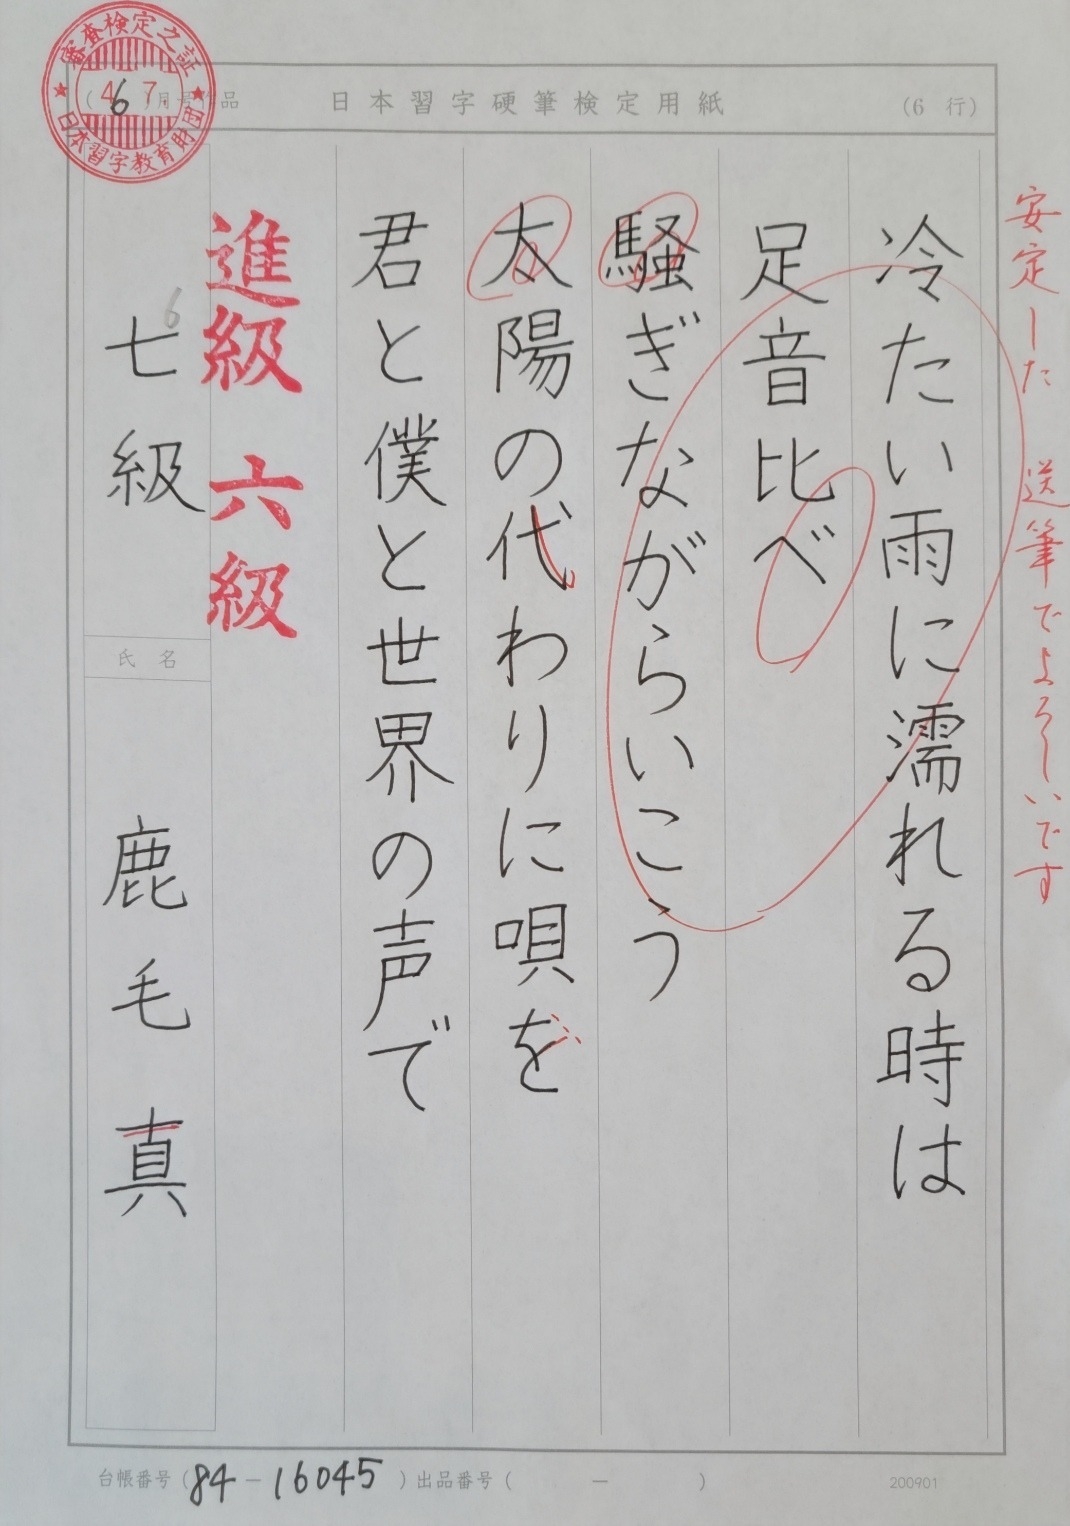 審査検定之証
4.7.
日本習字教育財団
(6)月号作品
日本習字硬筆検定用紙
(6 行)
安定した 送筆でよろしいです
冷たい雨に濡れる時は
足音比べ
騒ぎながらいこう
太陽の代わりに唄を
君と僕と世界の声で
進級 六級
6
七級
氏名
鹿毛真
台帳番号(84-16045)出品番号( ー )
200901